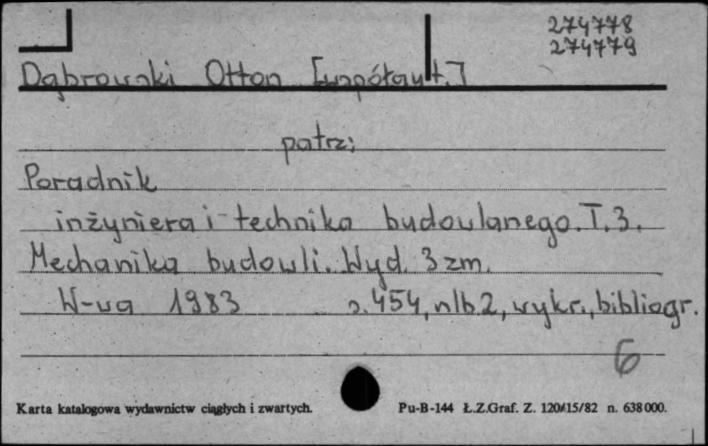 274778
274779
Dąbrowski Otton [współaut.]
patrz:
Poradnik
inżyniera i technika budowlanego. T. 3.
Mechanika budowli. Wyd. 3 zm.
W-wa 1983 s. 454, nlb 2, wykr., bibliogr.
6
Karta katalogowa wydawnictw ciągłych i zwartych.
Pu-B-144 Ł.Z.Graf. Z. 120/I/15/82 n. 638000.